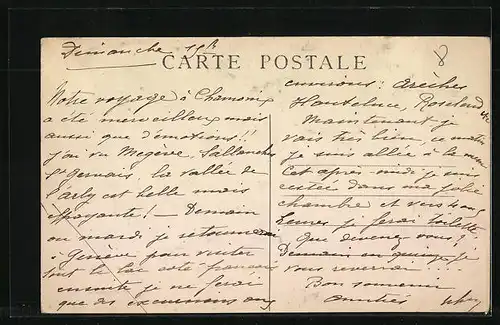 Dimanche 15h
CARTE POSTALE
Notre voyage à Chamonix
a été merveilleux mais
aussi que d'émotions!!
j'ai vu Megève, Sallanches
St Gervais, la vallée de
l'arly est belle mais
effrayante! - Demain
ou mardi je retournerai
à Genève pour visiter
tout le lac coté français
ensuite je ne ferai
que des excursions aux
environs: arêches
Hauteluce, Roselend etc
Maintenant je
vais très bien, ce matin
je suis allée à la messe
Cet après-midi je suis
restée dans ma jolie
chambre et vers 4 ou 5
heures je ferai toilette
Que devenez vous?
Demain en je
vous reverrai ...
Bon souvenir
amitiés